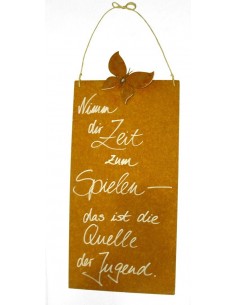 Nimm
dir Zeit
zum
Spielen –
das ist die
Quelle
der Jugend.